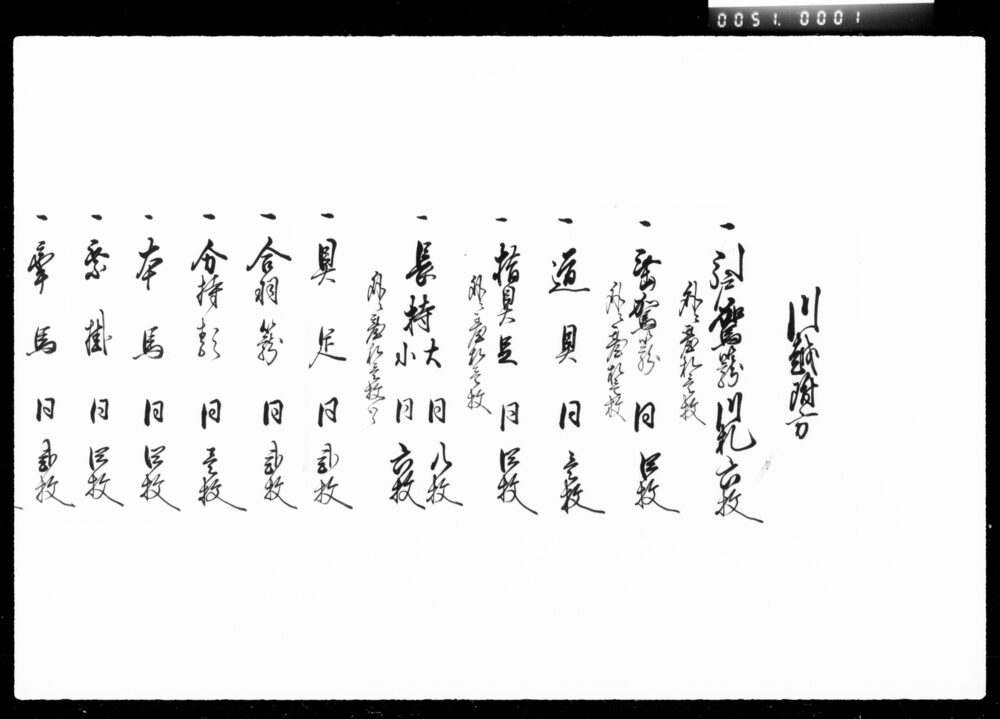 0051.0001
川越方
一 引戸駕籠 川札 六枚
外ニ台札壱枚
一 垂駕籠 同 四枚
外ニ台札壱枚
一 道具 同 壱枚
一 指具足 同 四枚
外ニ台札壱枚
一 長持 大 同 八枚
小 同 六枚
外ニ台札壱枚ツヽ
一 具足 同 弐枚
一 合羽籠 同 弐枚
一 分持 同 壱枚
一 本馬 同 四枚
一 乗掛 同 四枚
一 牽馬 同 弐枚